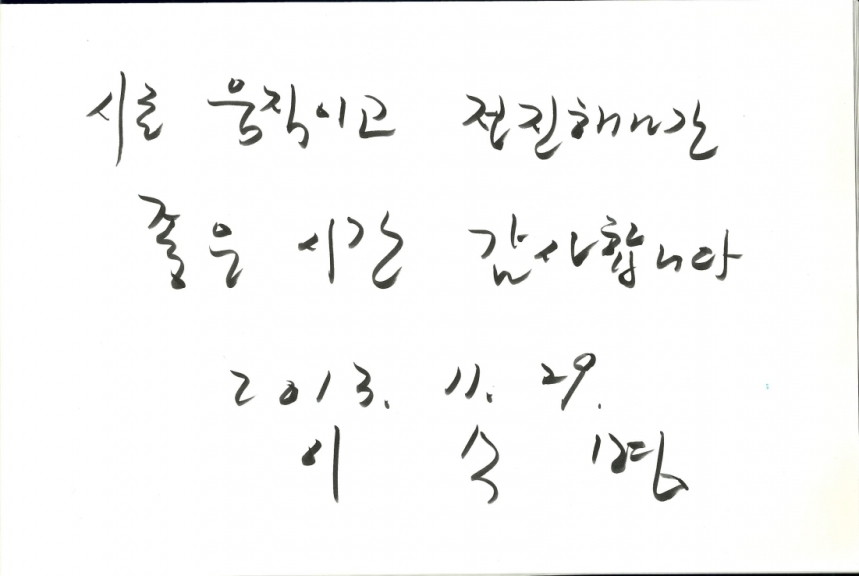 시로 움직이고 전진해나간
좋은 시간 감사합니다
2013. 11. 29.
이 수 명